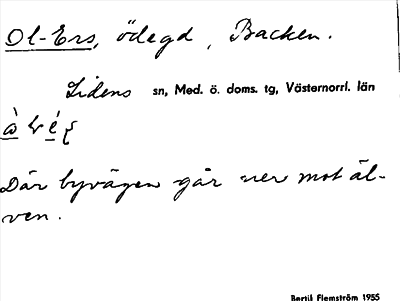 Ol-Ers, ödegd, Backen.
Lidens sn, Med. ö. doms. tg, Västernorrl. län
Där byvägen går ner mot äl-
ven.
Bertil Flemström 1955